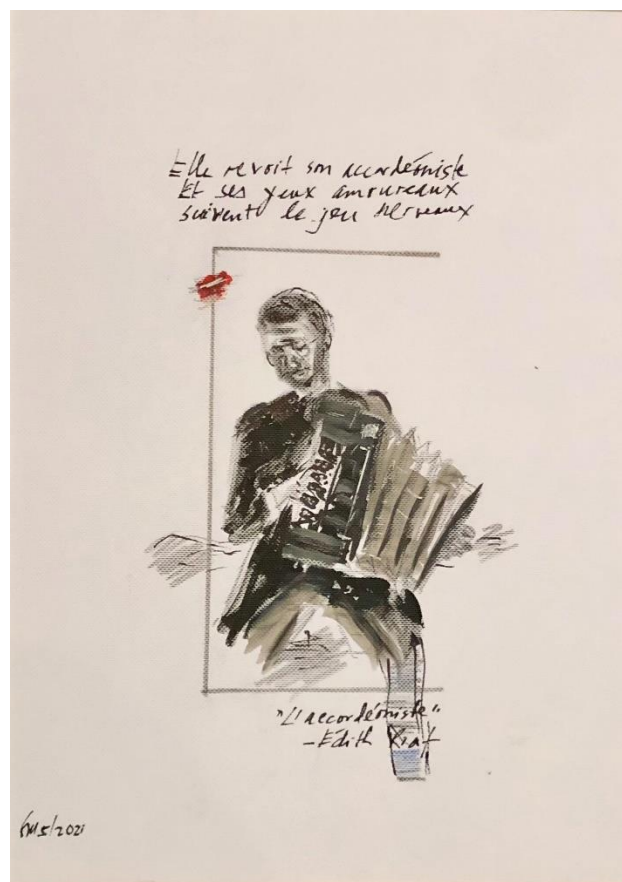 Elle revoit son accordéoniste
Et ses yeux amoureaux
suivent le jeu nerveaux
"L'accordéoniste"
-Edith Piaf
5/2021